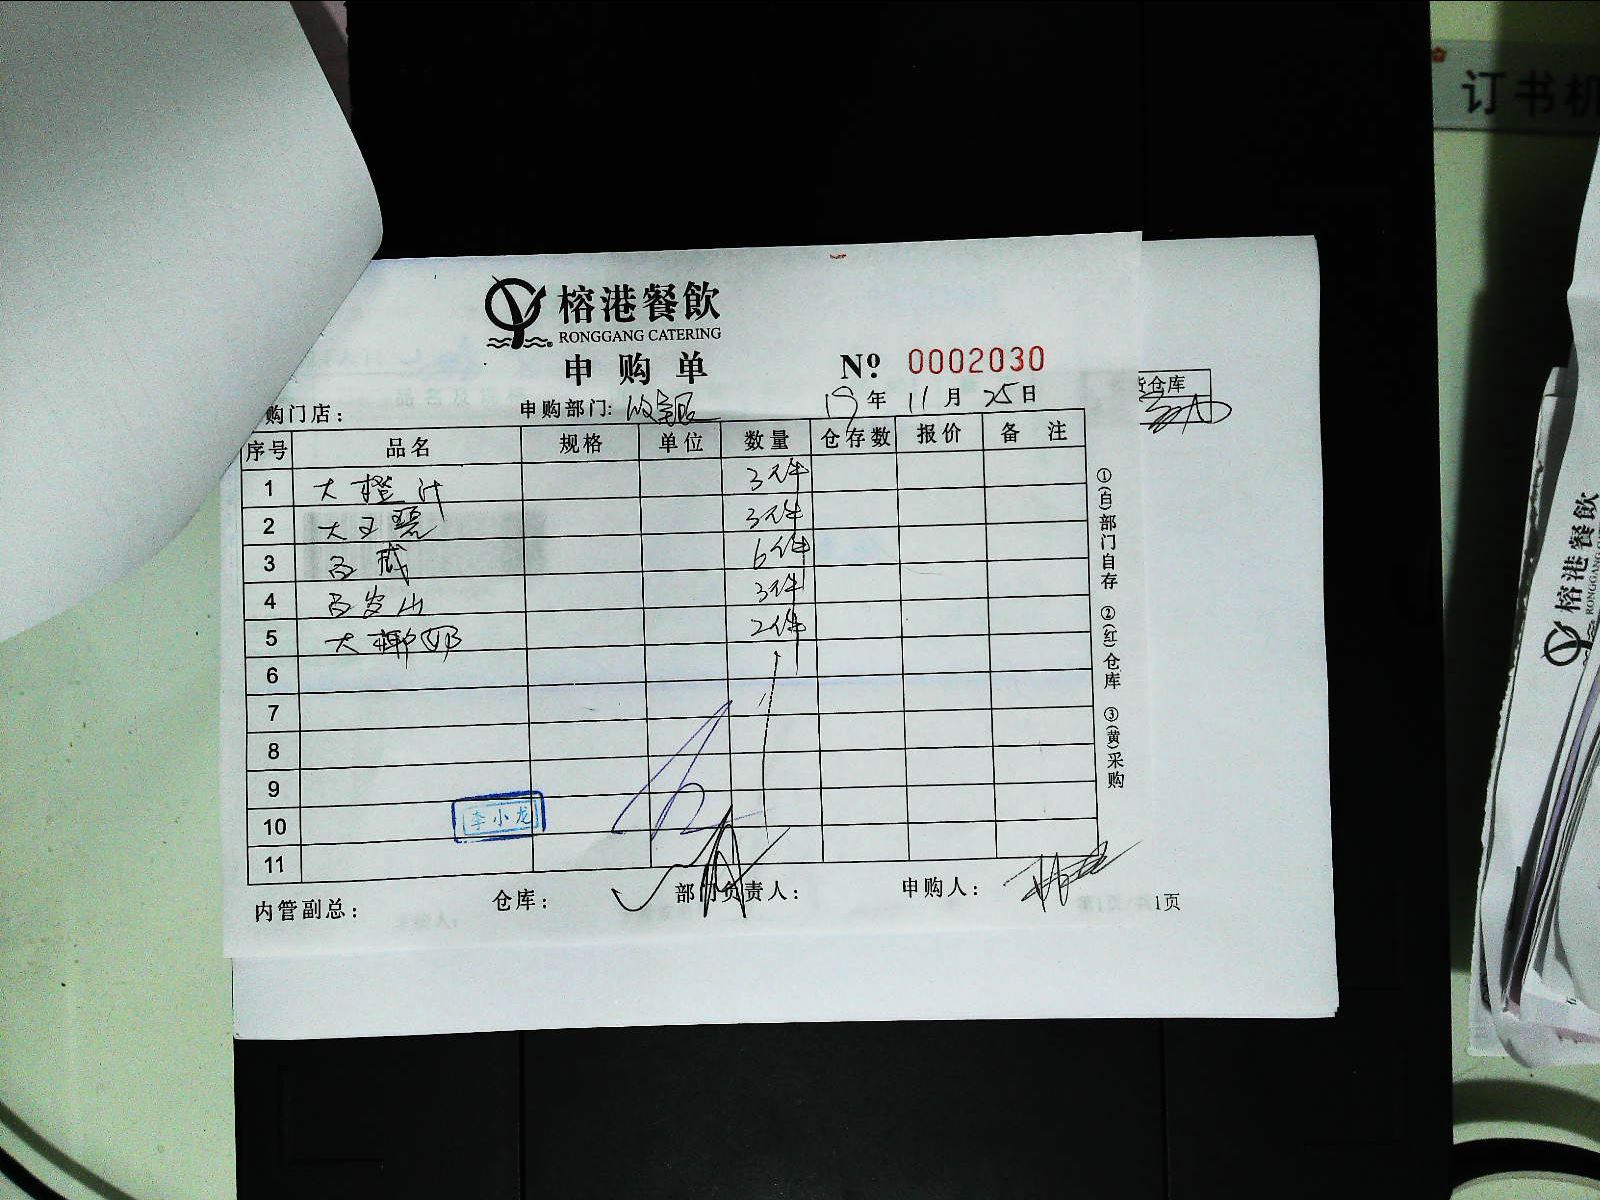 订书机
榕港餐飲
RONGGANG CATERING
申购单
№ 0002030
货仓库
购门店： 申购部门: 收银 19年 11月 25日
序号 品名 规格 单位 数量 仓存数 报价 备注
1 大橙汁 3件
2 大王老 3件
3 百威 6件
4 百岁山 3件
5 大椰奶 2件
6
7
8
9
10
11
李小龙
内管副总： 仓库： 部门负责人： 申购人： 1页
①(白)部门自存 ②(红)仓库 ③(黄)采购
榕港餐飲